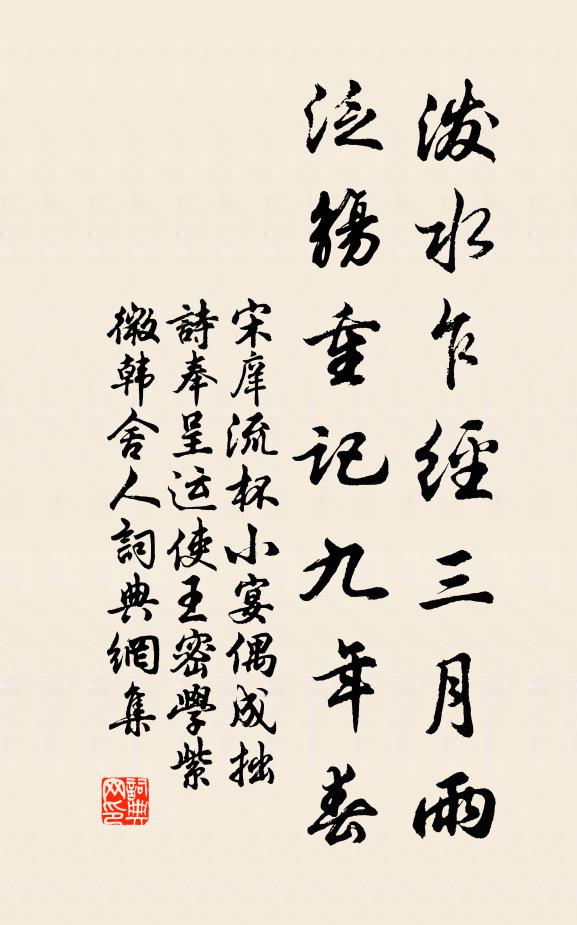 潑水乍經三月雨
泛觴重記九年春
宋庠流杯小宴偶成拙
詩奉呈运使王密學紫
微韩舍人詞典網集
詞典网印